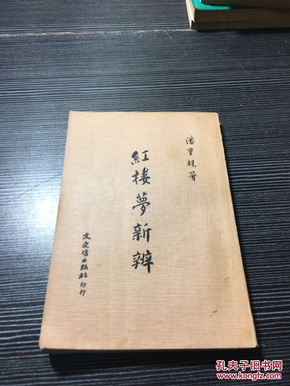 潘重規著
紅樓夢新辨
文史哲出版社印行
孔夫子旧书网